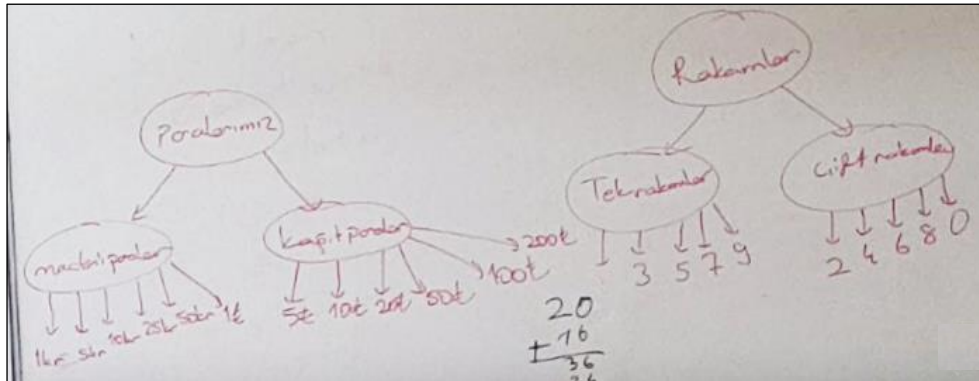 Paralarımız
madeni paralar
1kr 5kr 10kr 25kr 50kr 1₺
kağıt paralar
5₺ 10₺ 20₺ 50₺ 100₺ 200₺
Rakamlar
Tek rakamlar
3 5 7 9
Çift rakamlar
2 4 6 8 0
20
+ 16
36